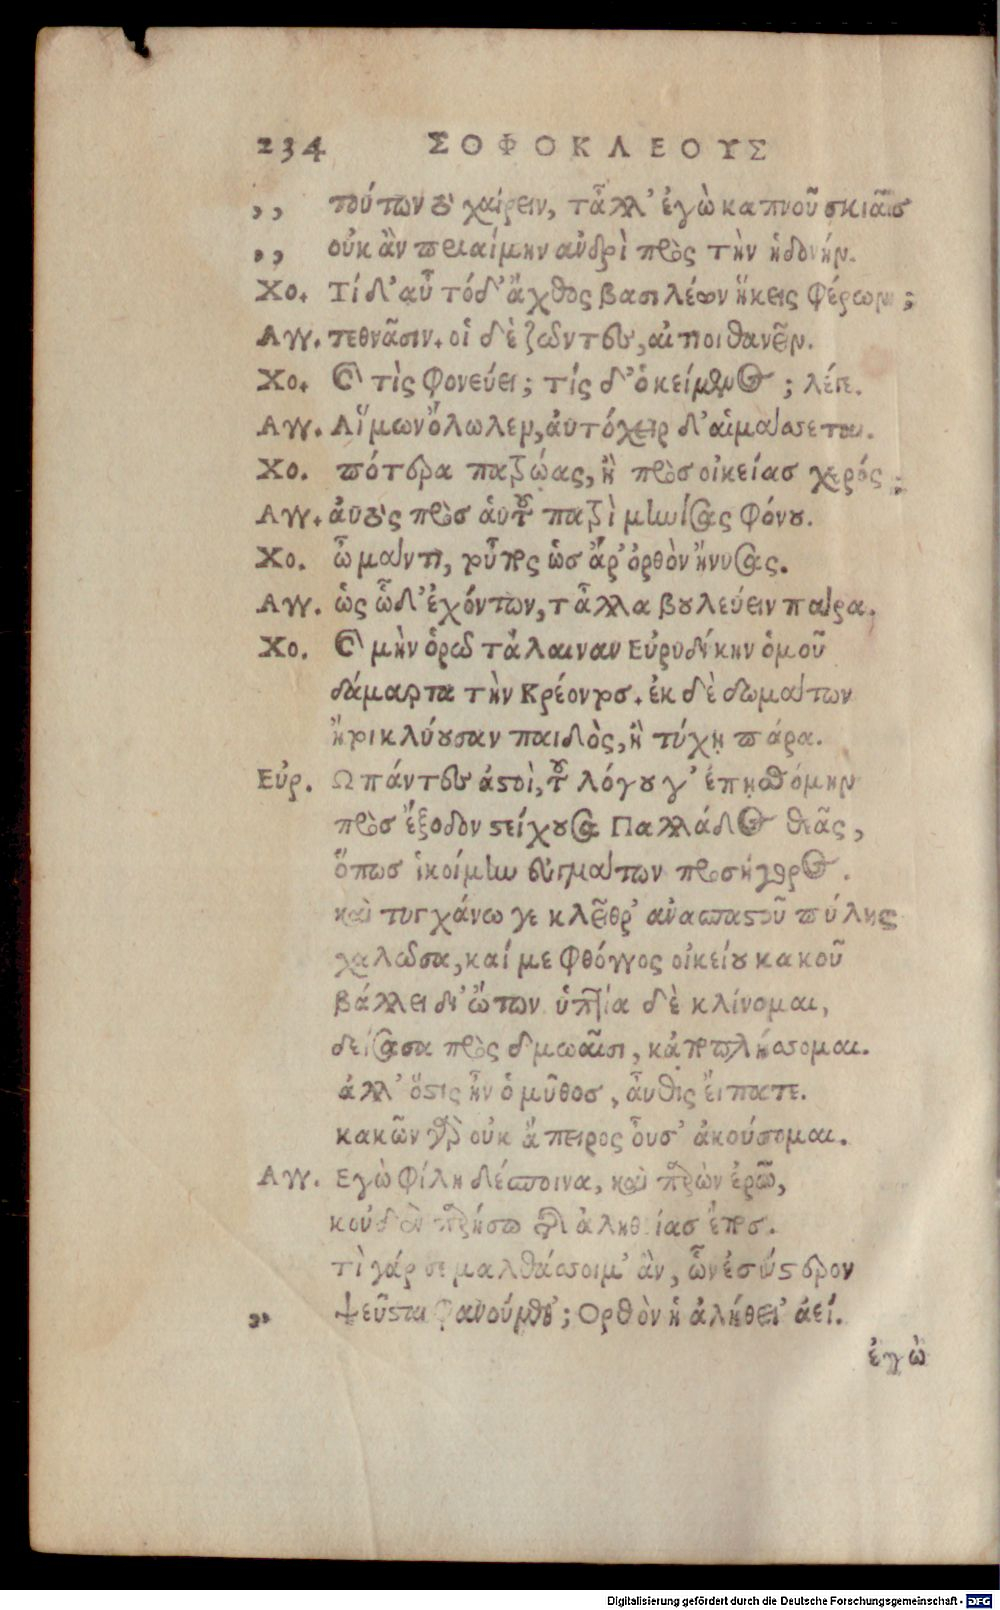 234 ΣΟΦΟΚΛΕΟΥΣ
,, τούτων τὸ χαίρειν, τἆλλ' ἐγὼ καπνοῦ σκιᾶς
,, οὐκ ἂν πριαίμην ἀνδρὶ πρὸς τὴν ἡδονήν.
Χο. Τί δ' αὖ τόδ' ἄχθος βασιλέων ἥκεις φέρων;
Αγγ. τεθνᾶσιν. οἱ δὲ ζῶντες, αἴτιοι θανεῖν.
Χο. καὶ τὶς φονεύει; τίς δ' ὁ κείμενος; λέγε.
Αγγ. Αἵμων ὄλωλεν, ἀυτόχειρ δ' αἱμάσσεται.
Χο. πότερα πατρῴας, ἢ πρὸς οἰκείας χερός;
Αγγ. ἀυτὸς πρὸς ἁυτοῦ πατρὶ μηνίσας φόνου.
Χο. ὦ μάντι, τοὖπος ὡς ἄρ' ὀρθὸν ἤνυσας.
Αγγ. ὡς ὧδ' ἐχόντων, τἆλλα βουλεύειν πάρα.
Χο. καὶ μὴν ὁρῶ τάλαιναν Εὐρυδίκην ὁμοῦ
δάμαρτα τὴν Κρέοντος. ἐκ δὲ δωμάτων
ἤτοι κλύουσαν παιδὸς, ἢ τύχῃ πάρα.
Εὐρ. Ω πάντες ἀστοὶ, τοῦ λόγου γ' ἐπῃσθόμην
πρὸς ἔξοδον στείχουσα Παλλάδος θεᾶς,
ὅπως ἱκοίμην εὐγμάτων προσήγορος.
καὶ τυγχάνω γε κλεῖθρ' ἀνασπαστοῦ πύλης
χαλῶσα, καί με φθόγγος οἰκείου κακοῦ
βάλλει δι' ὤτων ὑπτία δὲ κλίνομαι,
δείσασα πρὸς δμωαῖσι, κἀποπλήσσομαι.
ἀλλ' ὅστις ἦν ὁ μῦθος, ἆυθις ἔιπατε.
κακῶν γὰρ οὐκ ἄπειρος οὖσ' ἀκούσομαι.
Αγγ. Εγὼ φίλη δέσποινα, καὶ παρὼν ἐρῶ,
κοὐδὲν παρήσω τῆς ἀληθείας ἔπος.
τὶ γάρ σε μαλθάσσοιμ' ἂν, ὧν ἐσύστερον
,, ψεῦσται φανούμεθ'; Ορθὸν ἡ ἀλήθει' ἀεί.
ἐγὼ
Digitalisierung gefördert durch die Deutsche Forschungsgemeinschaft - DFG